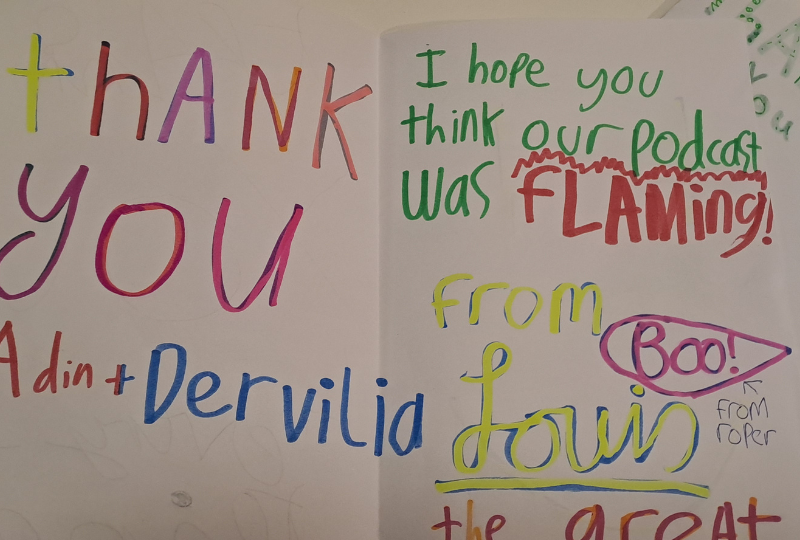 thANK
YOU
Adin + Dervilia
I hope you
think our podcast
was fLAMing!
from
Boo!
Louis
from
roper
the greAt